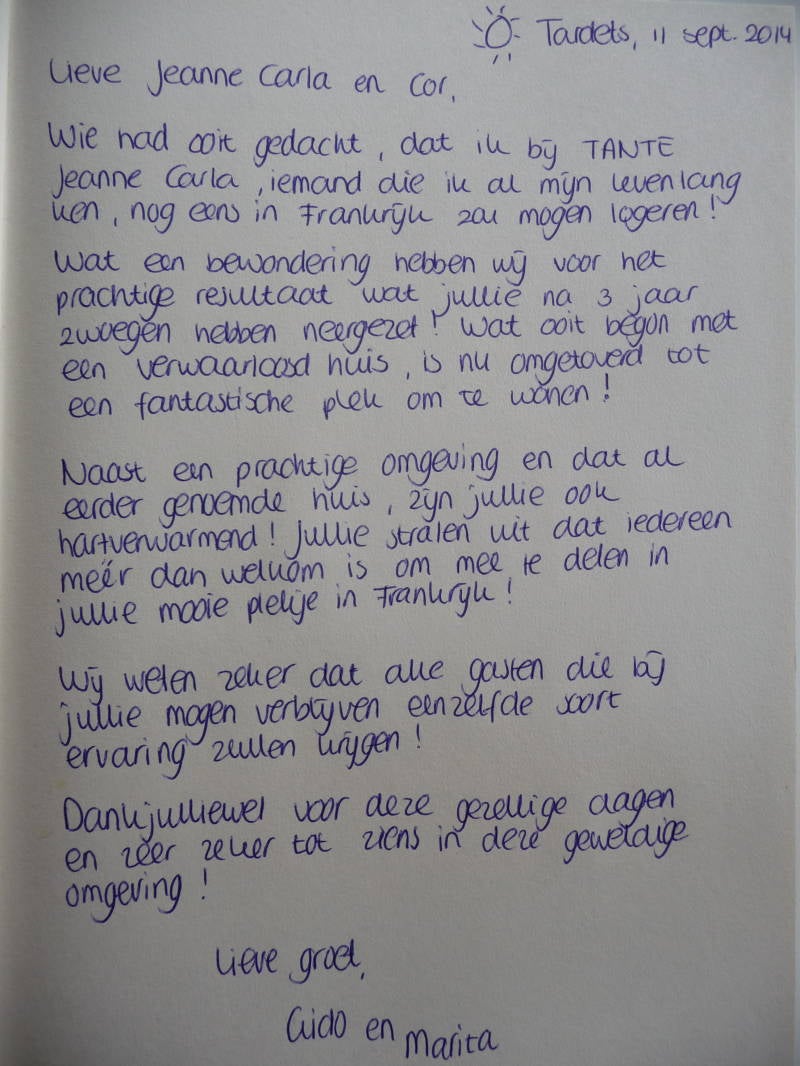 Tardets, 11 sept. 2014
Lieve Jeanne Carla en Cor,
Wie had ooit gedacht, dat ik bij TANTE
Jeanne Carla, iemand die ik al mijn leven lang
ken, nog eens in Frankrijk zou mogen logeren!
Wat een bewondering hebben wij voor het
prachtige resultaat wat jullie na 3 jaar
zwoegen hebben neergezet! Wat ooit begon met
een verwaarloosd huis, is nu omgetoverd tot
een fantastische plek om te wonen!
Naast een prachtige omgeving en dat al
eerder genoemde huis, zijn jullie ook
hartverwarmend! Jullie stralen uit dat iedereen
méér dan welkom is om mee te delen in
jullie mooie plekje in Frankrijk!
Wij weten zeker dat alle gasten die bij
jullie mogen verblijven eenzelfde soort
ervaring zullen krijgen!
Dankjulliewel voor deze gezellige dagen
en zeer zeker tot ziens in deze geweldige
omgeving!
Lieve groet,
Guido en Marita